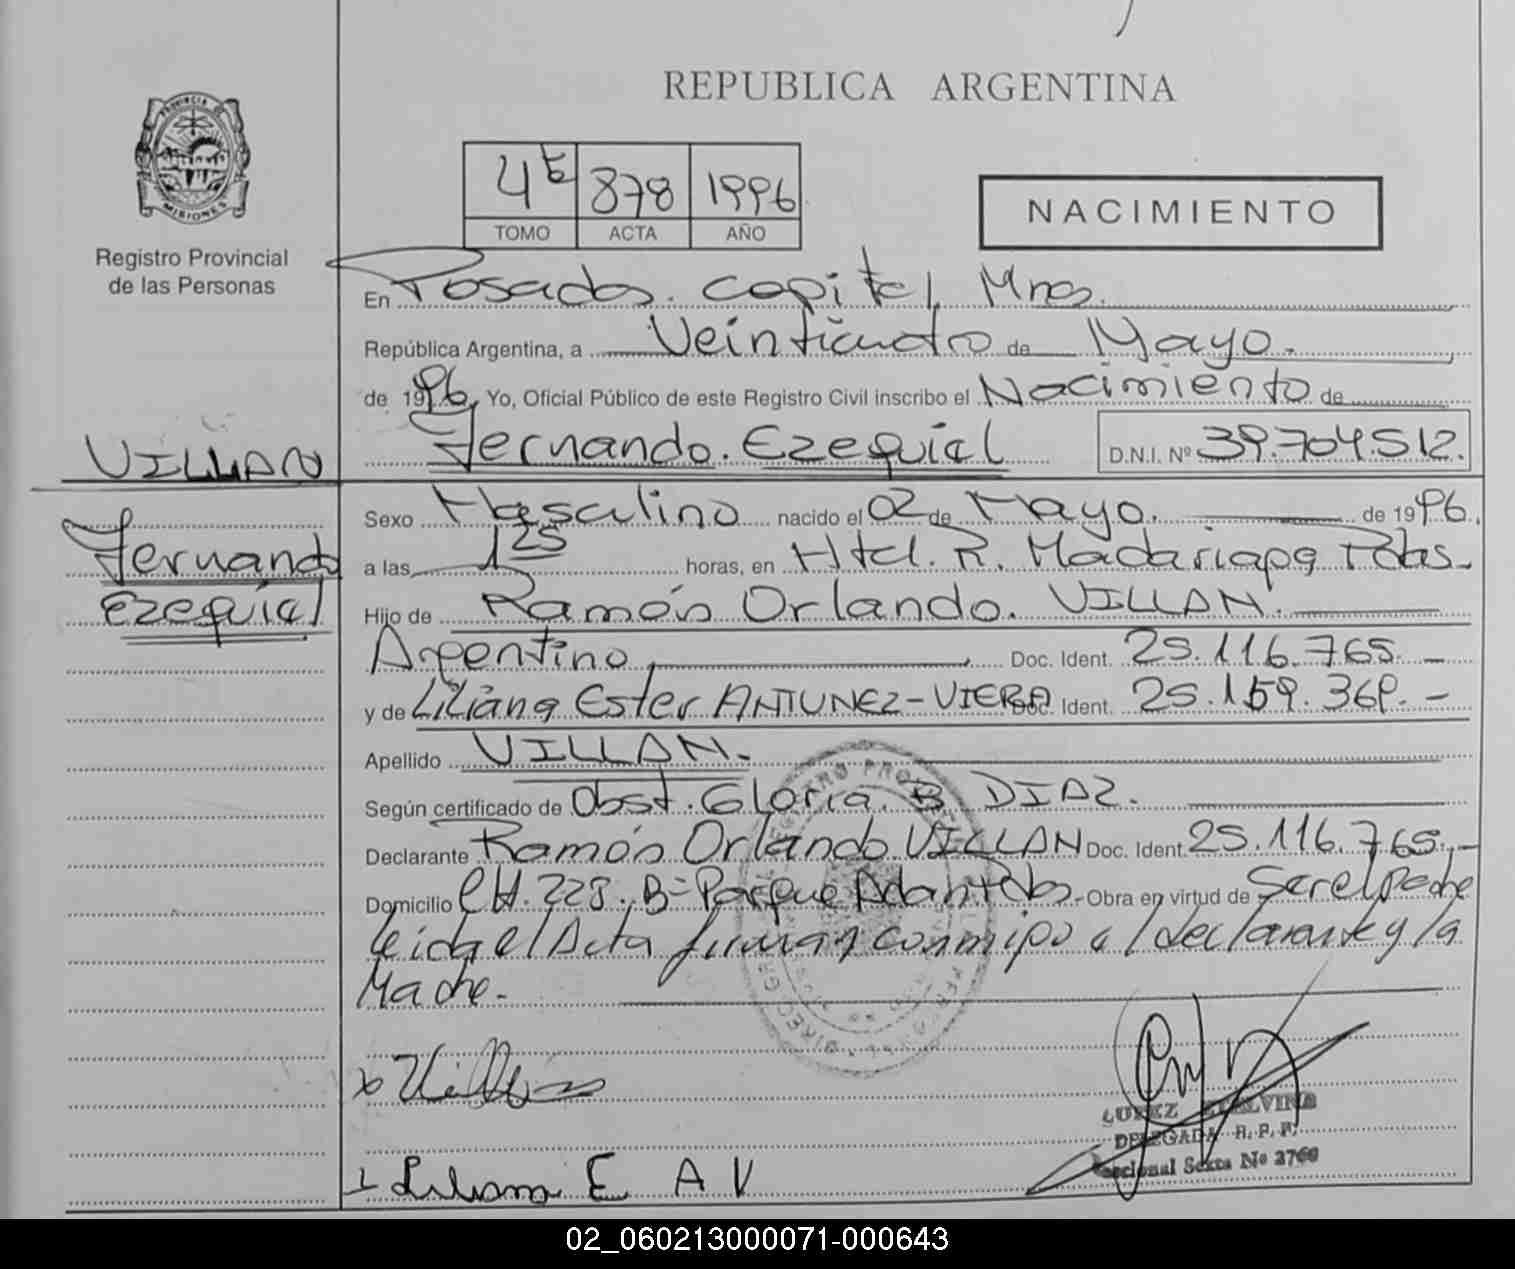 REPUBLICA ARGENTINA
PROVINCIA DE
MISIONES
Registro Provincial
de las Personas
4E 878 1996
TOMO ACTA AÑO
NACIMIENTO
En Posadas. Capital, Mnes.
República Argentina, a Veinticuatro de Mayo.
de 1996, Yo, Oficial Público de este Registro Civil inscribo el Nacimiento de
VILLAN
Fernando. Ezequiel D.N.I. Nº 39.704.512.
Fernando
Ezequiel
Sexo Masculino nacido el 02 de Mayo. de 1996.
a las 1 25 horas, en Htal. R. Madariaga Pdas.
Hijo de Ramón Orlando. VILLAN.
Argentino, Doc. Ident. 25.116.765.-
y de Liliana Ester ANTUNEZ-VIERA Doc. Ident. 25.159.369.-
Apellido VILLAN.
Según certificado de Obst. Gloria. B DIAZ.
Declarante Ramón Orlando VILLAN Doc. Ident. 25.116.765,-
Domicilio CH.228, Bº Parque Adam Pdas. Obra en virtud de Ser el padre
leida el Acta firman conmigo el declarante y la
Madre.
x Villan
LOPEZ ETELVINA
DELEGADA R. P. P.
Seccional Sexta Nº 2760
Liliana E A V
02_060213000071-000643